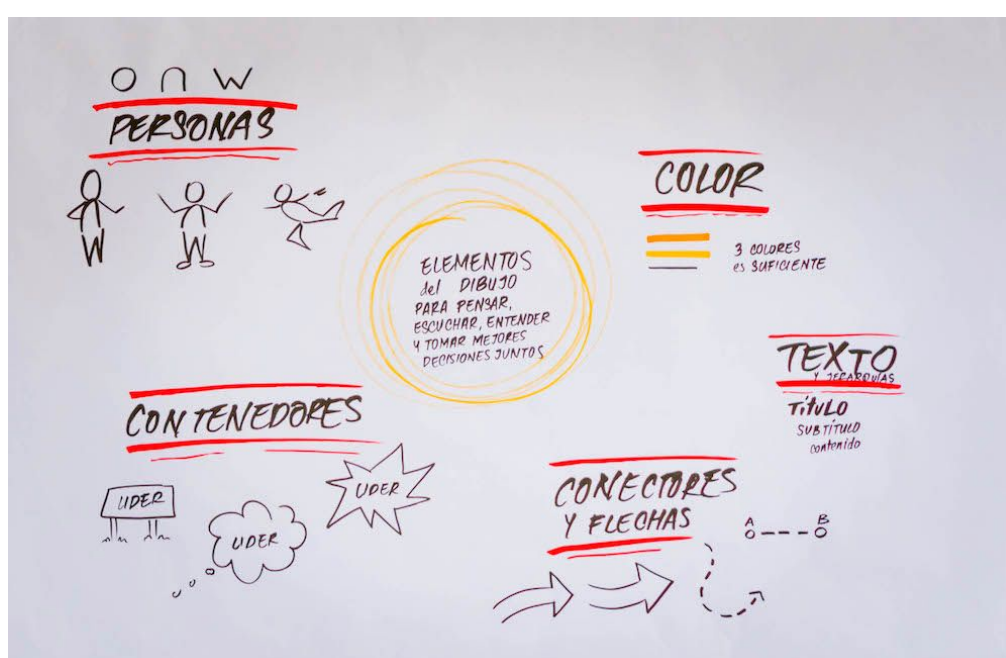 O ∩ W
PERSONAS
ELEMENTOS
del DIBUJO
PARA PENSAR,
ESCUCHAR, ENTENDER
Y TOMAR MEJORES
DECISIONES JUNTOS
COLOR
3 COLORES
es SUFICIENTE
TEXTO
Y JERARQUÍAS
TíTULO
SUBTÍTULO
contenido
CONTENEDORES
LIDER
LIDER
LIDER
CONECTORES
Y FLECHAS
A B